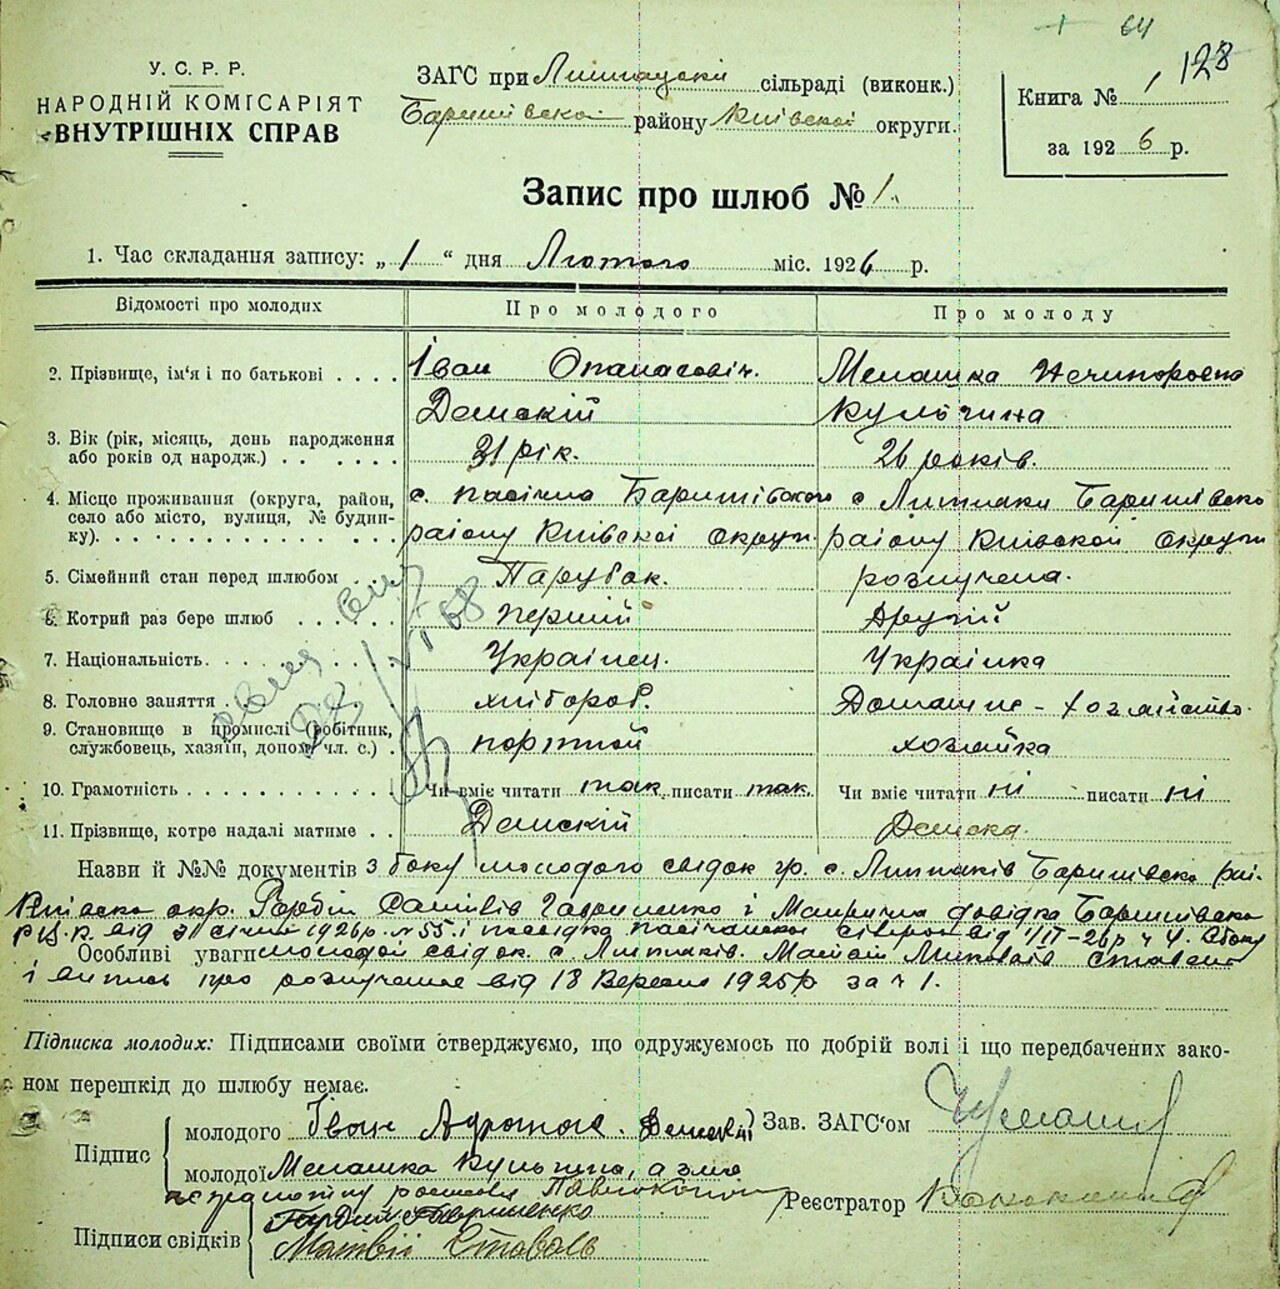 64
128
У. С. Р. Р.
НАРОДНІЙ КОМІСАРІЯТ
ВНУТРІШНІХ СПРАВ
ЗАГС при сільраді (виконк.)
району Київскої округи.
Книга № 1
за 1926 р.
Запис про шлюб № 1.
1. Час складання запису: „1“ дня Лютого міс. 1926 р.
Відомості про молодих Про молодого Про молоду
2. Прізвище, ім'я і по батькові . . . . Іван Опанасовіч. Мелашка
Демскій Кульчина
3. Вік (рік, місяць, день народження
або років од народж.) . . . . . . 31 рік. 26 років.
4. Місце проживання (округа, район,
село або місто, вулиця, № будин-
ку). . . . . . . . . . . . . .
с. Пасічна Баришівского
району Київскої округи.
с Липняки Баришівско
району Київскої округи
5. Сімейний стан перед шлюбом . . . Парубак. розлучена.
6. Котрий раз бере шлюб . . . . . . перший Другий
7. Національність. . . . . . . . . Українец. Українка
8. Головне заняття . . . . . . . . хлібороб. Домашне - хозяйство.
9. Становище в промислі (робітник,
службовець, хазяїн, допом. чл. с.) . портной хозяйка
10. Грамотність . . . . . . . . . . Чи вміє читати так, писати так. Чи вміє читати ні писати ні
11. Прізвище, котре надалі матиме . . Демскій Демска.
Назви й №№ документів З боку молодого свідок гр. с. Липняків Баришівско рай.
окр. Гордій Гавриленко і довідка Баришівско
від 31 січня 1926 р. № 55. і посвідка від
Особливі уваги молодой свідок с. Липняків. Матвій
і випись про розлучение від 18 Вересня 1925 р за ч 1.
Підписка молодих: Підписами своїми стверджуємо, що одружуємось по добрій волі і що передбачених зако-
ном перешкід до шлюбу немає.
Підпис
молодого Іван Демскій
молодої Мелашка Кульчина, а за
Зав. ЗАГС'ом
Реєстратор
Підписи свідків
Гордій Гавриленко
Матвій